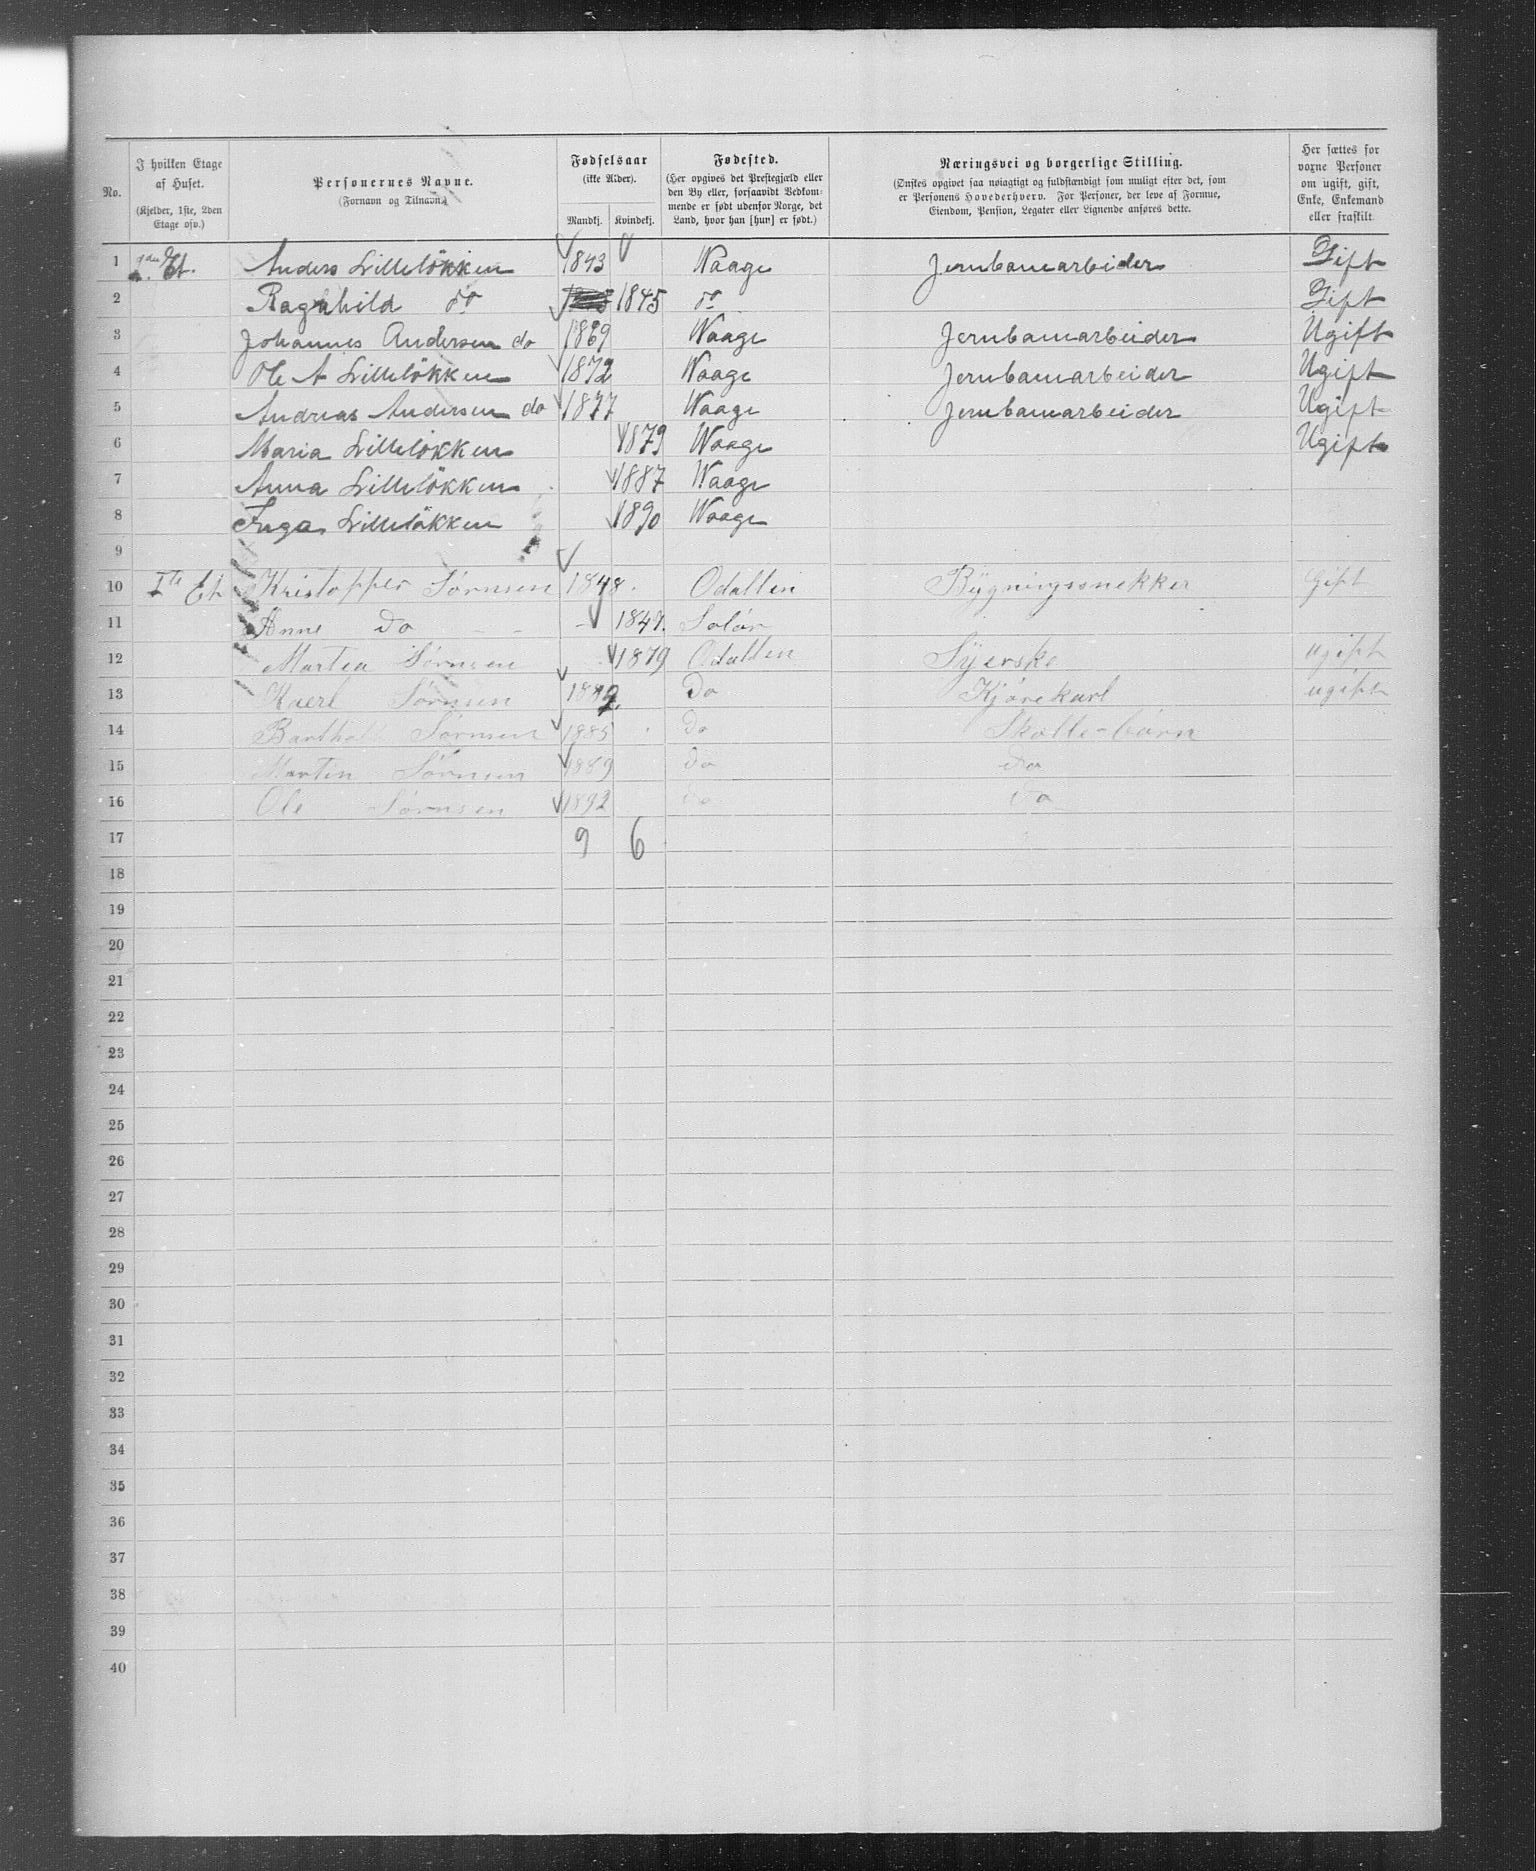 No.
I hvilken Etage af Huset. (Kjelder, 1ste, 2den Etage osv.)
Personernes Navne. (Fornavn og Tilnavn.)
Fødselsaar (ikke Alder). Mandkj. Kvindekj.
Fødested. (Her opgives det Præstegjæld eller den By eller, forsaavidt Vedkommende er født udenfor Norge, det Land, hvor han [hun] er født.)
Næringsvei og borgerlige Stilling. (Ønskes opgivet saa nøiagtigt og fuldstændigt som muligt efter det, som er Personens Hovederhverv. For Personer, der leve af Formue, Eiendom, Pension, Legater eller Lignende anføres dette.
Her sættes for voxne Personer om ugift, gift, Enke, Enkemand eller fraskilt.
1 2den Et. Anders Lilleløkken 1843 Waage Jernbanearbeider Gift
2 Ragnhild do 1845 do Gift
3 Johannes Andersen do 1869 Waage Jernbanearbeider Ugift
4 Ole A Lilleløkken 1872 Waage Jernbanearbeider Ugift
5 Andreas Andersen do 1877 Waage Jernbanearbeider Ugift
6 Maria Lilleløkken 1879 Waage Ugift
7 Anna Lilleløkken 1887 Waage
8 Inga Lilleløkken 1890 Waage
9
10 1te Et Kristoffer Sørnsen 1848. Odallen Bygningssnekker Gift
11 Anne Do 1849. Solør
12 Martea Sørnsen 1879 Odallen Syerske ugift
13 Kaerl Sørnsen 1882 Do Kjørekarl ugift
14 Barthe Sørnsen 1885 Do Skolle-børn
15 Martin Sørnsen 1889 Do Do
16 Ole Sørnsen 1892 Do Do
17 9 6
18
19
20
21
22
23
24
25
26
27
28
29
30
31
32
33
34
35
36
37
38
39
40